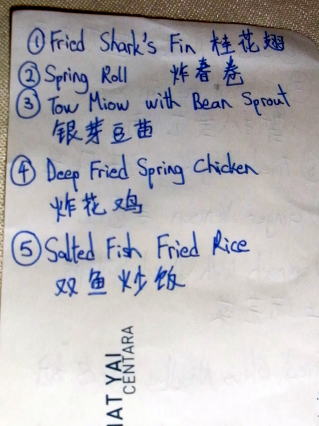 ① Fried Shark's Fin 桂花翅
② Spring Roll 炸春卷
③ Tow Miow with Bean Sprout
银芽豆苗
④ Deep Fried Spring Chicken
炸花鸡
⑤ Salted Fish Fried Rice
双鱼炒饭
HAT YAI
CENTARA